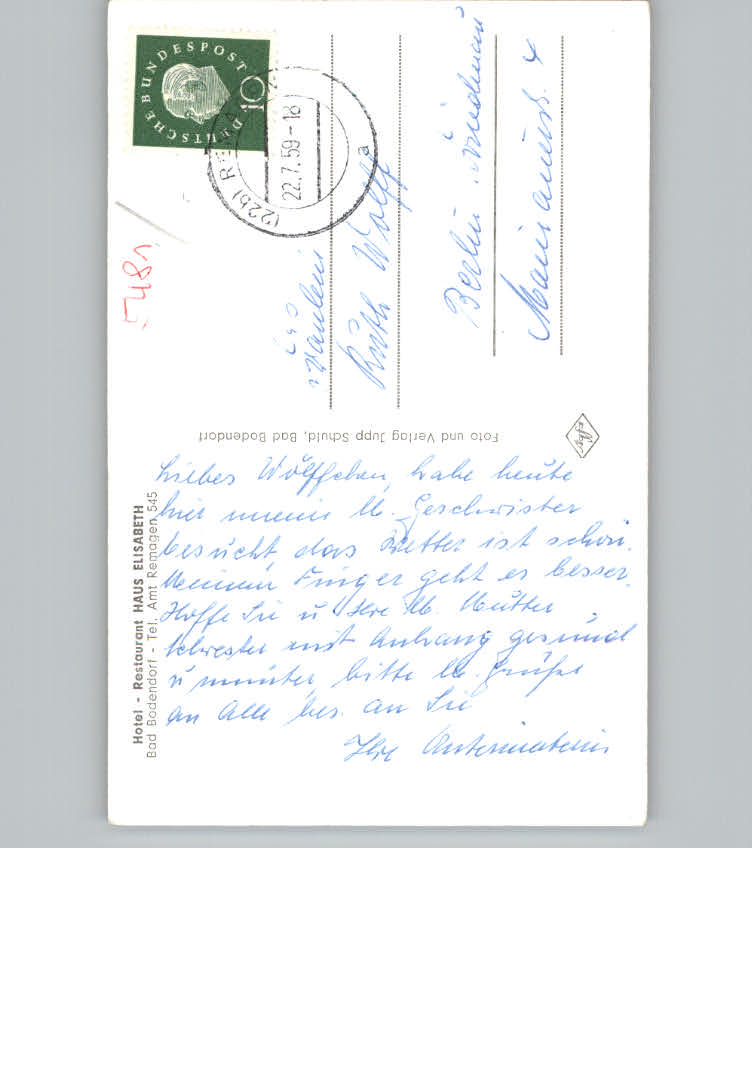 DEUTSCHE BUNDESPOST
10
(22b) REMAGEN
22.7.59-18
a
5481
Fräulein
Ruth Wolff
Berlin Friedenau
Mainauerstr. 4
Foto und Verlag Jupp Schuld, Bad Bodendorf
Agfa
Hotel - Restaurant HAUS ELISABETH
Bad Bodendorf - Tel. Amt Remagen 545
Liebes Wölffchen, habe heute
hier meine lb. Geschwister
besucht das Wetter ist schön.
Meinem Finger geht es besser.
Hoffe Sie u Ihre lb. Mutter
Schwester mit Anhang gesund
u munter, bitte lb. Grüße
an Alle bes. an Sie
Ihre